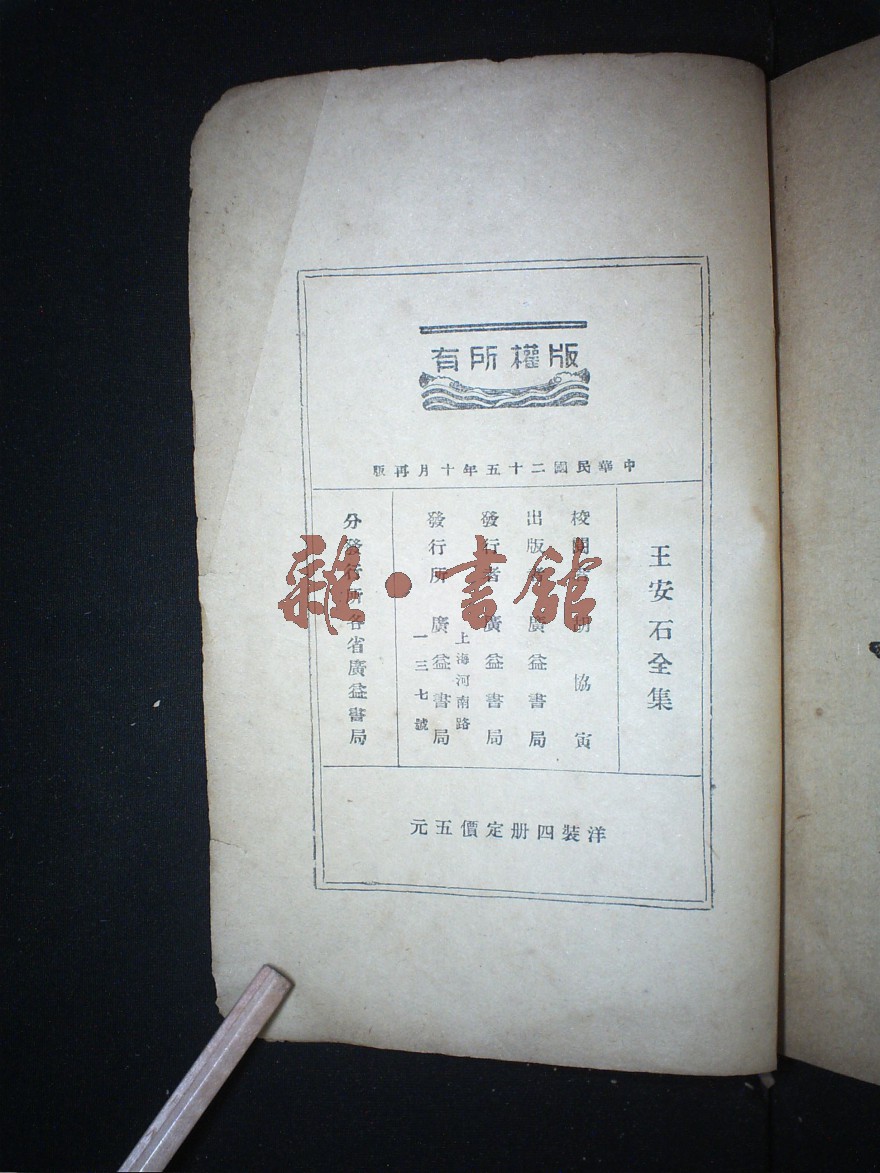 版權所有
中華民國二十五年十月再版
王安石全集
校閱者 胡協寅
出版者 廣益書局
發行者 廣益書局
上海河南路
發行所 廣益書局
一三七號
分發行所各省廣益書局
洋裝四册定價五元
雜·書館